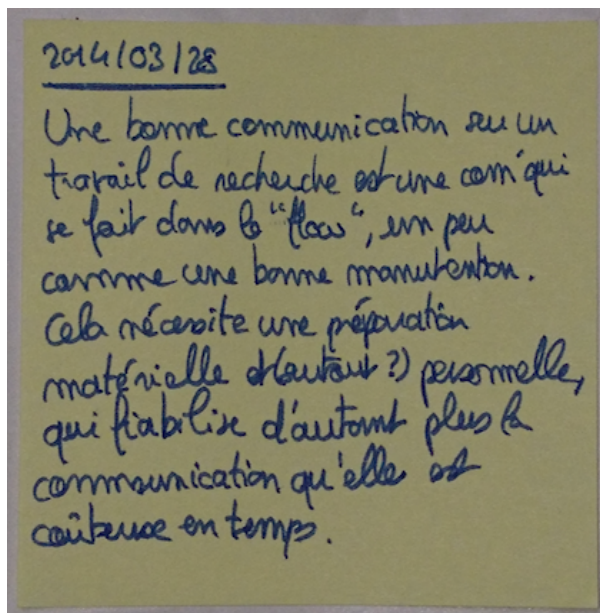 2014/03/28
Une bonne communication sur un
travail de recherche est une com' qui
se fait dans le "flow", un peu
comme une bonne manutention.
Cela nécessite une préparation
matérielle et (surtout ?) personnelle,
qui fiabilise d'autant plus la
communication qu'elle est
coûteuse en temps.